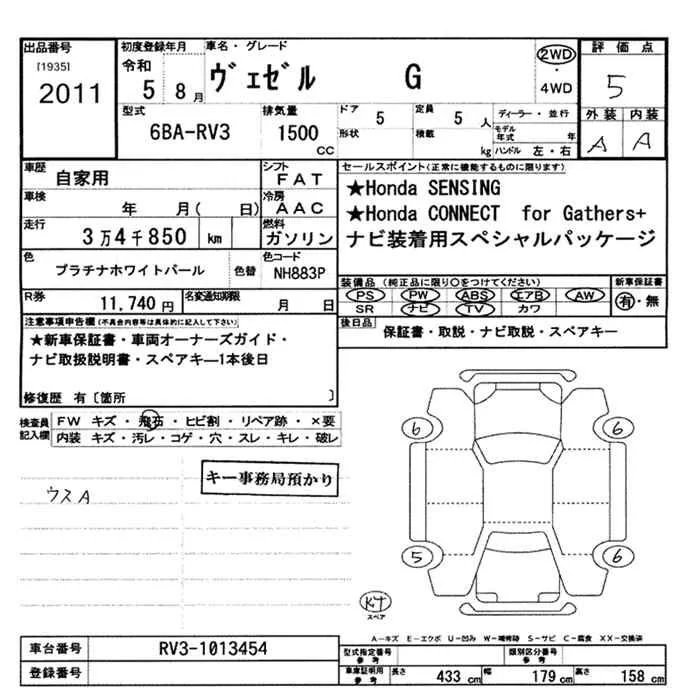 出品番号 初度登録年月 車名・グレード 評価点
[1935] 令和 2WD
2011 5 8月 ヴェゼル G ・ 5
4WD
型式 排気量 ドア 5 定員 5人 ディーラー・並行 外装 内装
6BA-RV3 1500 CC 形状 積載 kg モデル年式 年 A A
ハンドル 左・右
車歴 自家用 シフト FAT セールスポイント(正常に機能するものに限ります)
車検 年 月( 日) 冷房 AAC ★Honda SENSING
走行 3万4千850 km 燃料 ガソリン ★Honda CONNECT for Gathers+
ナビ装着用スペシャルパッケージ
色 プラチナホワイトパール 色替 色コード NH883P
装備品(純正品に限り○をつけてください) 新車保証書
R券 11,740円 名変通知期限 月 日 PS PW ABS エアB AW 有・無
SR ナビ TV カワ
注意事項申告欄(不具合内容等は具体的に記入して下さい) 後日品 保証書・取説・ナビ取説・スペアキー
★新車保証書・車両オーナーズガイド・
ナビ取扱説明書・スペアキー1本後日
修復歴 有〔箇所 〕
検査員 FW キズ・飛石・ヒビ割・リペア跡・×要
記入欄 内装 キズ・汚レ・コゲ・穴・スレ・キレ・破レ
6 6
キー事務局預かり
ウスA
5 6
KT
スペア
A-キズ E-エクボ U-凹み W-補修跡 S-サビ C-腐食 XX-交換済
車台番号 RV3-1013454 型式指定番号 参考 類別区分番号 参考
登録番号 車庫証明用 参考 長さ 433 cm 幅 179 cm 高さ 158 cm